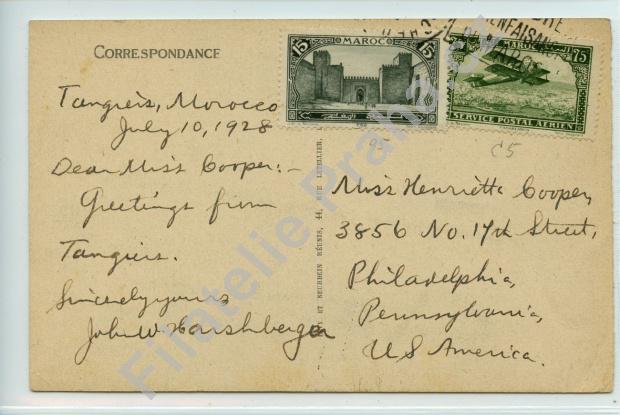 CORRESPONDANCE
Tangiers, Morocco
July 10, 1928
Dear Miss Cooper:-
Greetings from
Tangiers.
Sincerely yours
John W Harshberger
15 MAROC 15
MAROC 75
SERVICE POSTAL AÉRIEN
Miss Henrietta Cooper,
3856 No. 17th Street,
Philadelphia,
Pennsylvania,
U S America.
ET NEURDEIN RÉUNIS, 44, RUE LETELLIER,
95
c5
Filatelie Praha